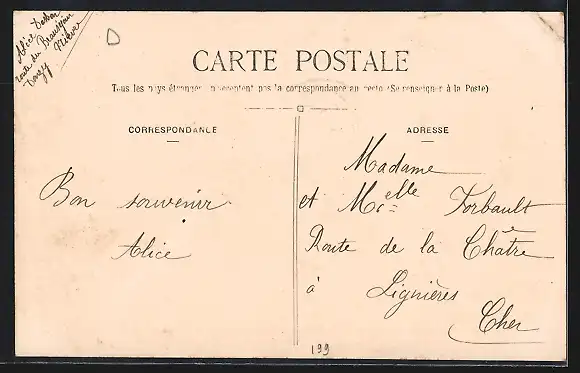 Alice
route du Beaudyau
Donzy Nièvre
D
CARTE POSTALE
Tous les pays étrangers n'acceptent pas la correspondance au recto (Se renseigner à la Poste)
CORRESPONDANCE
Bon souvenir
Alice
ADRESSE
Madame
et Melle Forbault
Route de la Châtre
à Lignières
Cher
199